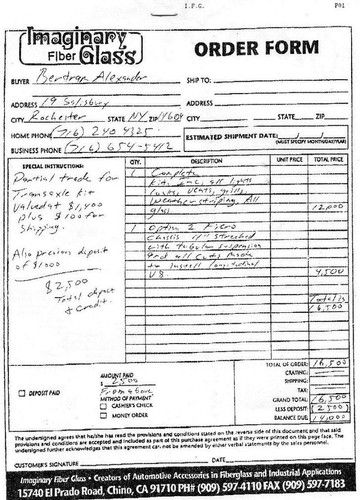 I.F.G.
P01
Imaginary
Fiber Glass
ORDER FORM
BUYER Bertram Alexander
SHIP TO:
ADDRESS 19 Salisbury
ADDRESS
CITY Rochester STATE NY ZIP 14609
CITY STATE ZIP
HOME PHONE (716) 240 4125
ESTIMATED SHIPMENT DATE: / /
(MUST SPECIFY MONTH/DAY/YEAR)
BUSINESS PHONE (716) 654-5412
SPECIAL INSTRUCTIONS:
Partial trade for
Transaxle kit
Valued at $1,400
plus $100 for
Shipping.
Also previous deposit
of $1000
$2,500
Total depost
& credit.
QTY. DESCRIPTION UNIT PRICE TOTAL PRICE
1 Complete
kit, all lights
locks, vents, grills,
weatherstripping, All
glass 12,000
1 Option 2 Fiero
Chassis 11" stretched
with tubular suspension
and all cuts made
to install longitudinal
V8. 4,500
Total is
16,500
AMOUNT PAID
$ 2500
From above
DEPOSIT PAID
METHOD OF PAYMENT
CASHIER'S CHECK
MONEY ORDER
TOTAL OF ORDER: 16,500
CRATING:
SHIPPING:
TAX:
GRAND TOTAL 16,500
LESS DEPOSIT (2500)
BALANCE DUE 14,000
The undersigned agrees that he/she has read the provisions and conditions stated on the reverse side of this document and that said
provisions and conditions are accepted and included as part of this purchase agreement as if they were printed on this page face. The
undersigned further acknowledges that this agreement can not be amended by either verbal statements by the sales personnel.
CUSTOMERS SIGNATURE DATE
Imaginary Fiber Glass • Creators of Automotive Accessories in Fiberglass and Industrial Applications
15740 El Prado Road, Chino, CA 91710 PH# (909) 597-4110 FAX (909) 597-7183